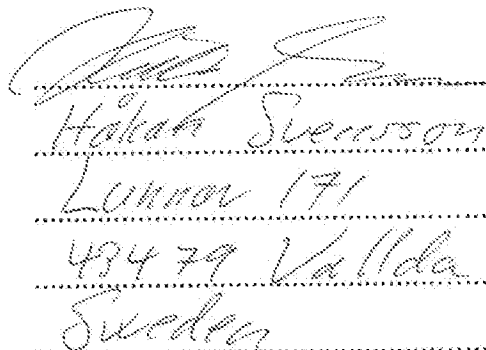 Håkan Svensson
171
434 79 Vallda
Sweden